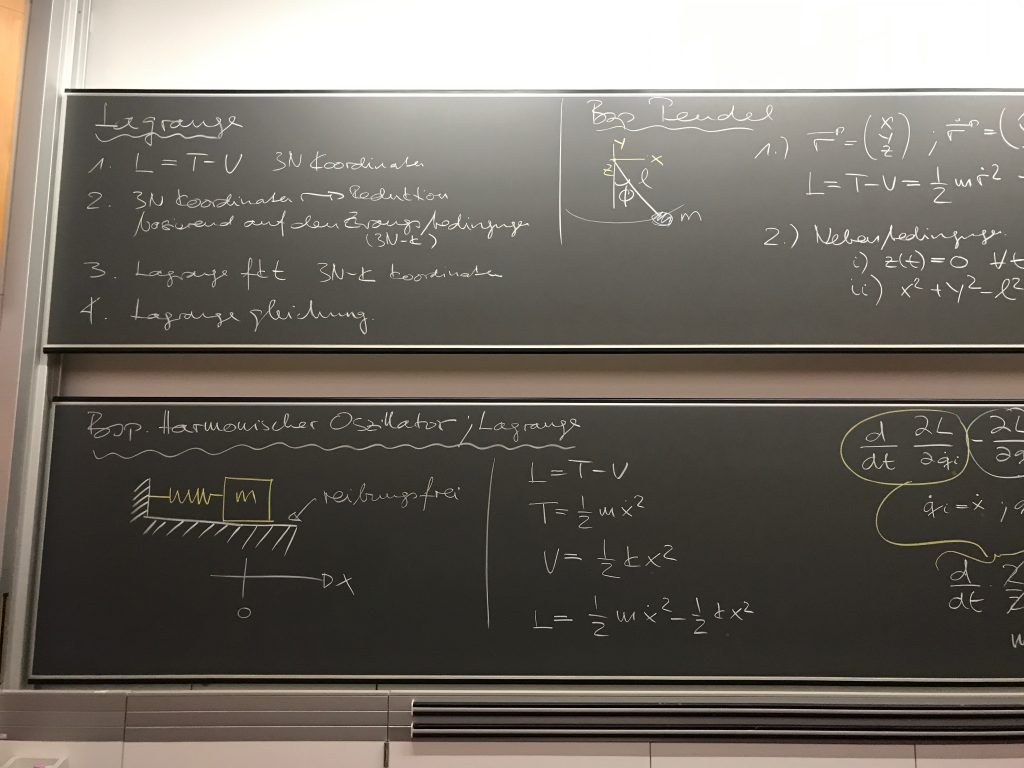 Lagrange
1. L = T - V 3N Koordinaten
2. 3N Koordinaten → Reduktion
basierend auf den Zwangsbedingungen
(3N-k)
3. Lagrange fkt 3N-k Koordinaten
4. Lagrange gleichung.
Bsp Pendel
y
x
z
ϕ
l
m
1.) r⃗ = (x y z) ; ṙ⃗ = (
L = T - V = 1/2 m ṙ² -
2.) Nebenbedingungen
i) z(t) = 0 ∀t
ii) x² + y² - l²
Bsp. Harmonischer Oszillator ; Lagrange
m
reibungsfrei
x
0
L = T - V
T = 1/2 m ẋ²
V = 1/2 k x²
L = 1/2 m ẋ² - 1/2 k x²
d/dt ∂L/∂q̇i - ∂L/∂q
q̇i = ẋ ;
d/dt